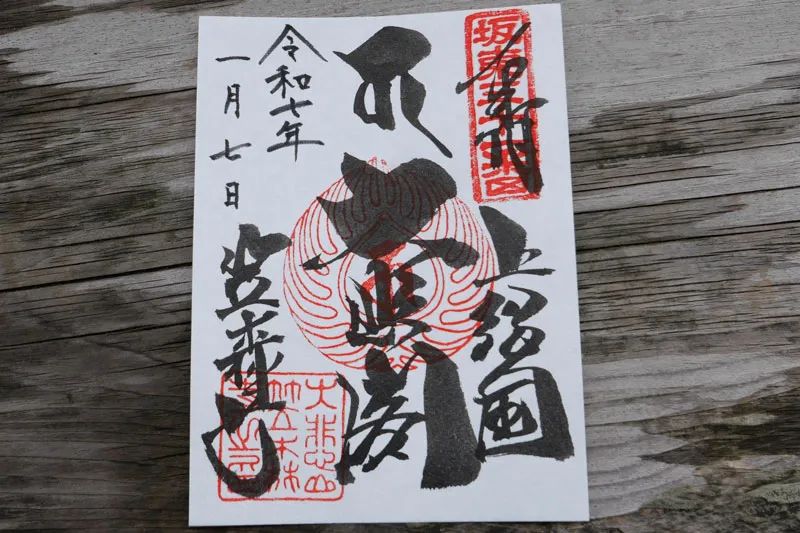 坂東三十一番
奉拝
上総国
大悲閣
令和七年
一月七日
笠森寺
大悲山
笠森